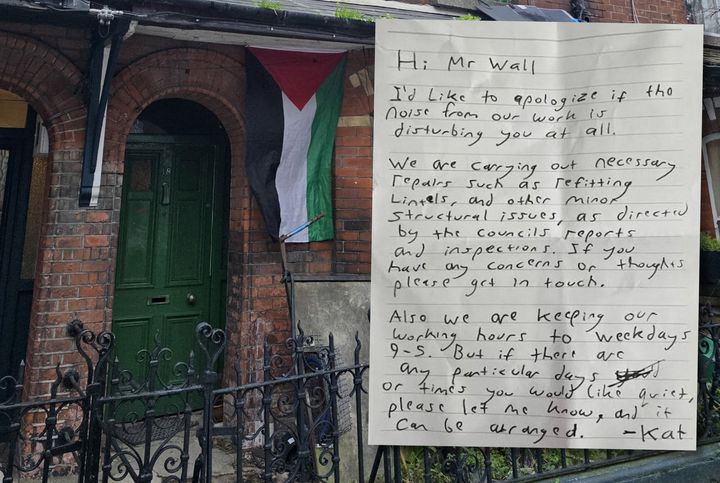 Hi Mr Wall
I'd like to apologize if the
noise from our work is
disturbing you at all.
We are carrying out necessary
repairs such as refitting
Lintels, and other minor
structural issues, as directed
by the councils reports
and inspections. If you
have any concerns or thoughts
please get in touch.
Also we are keeping our
working hours to weekdays
9-5. But if there are
any particular days
or times you would like quiet,
please let me know, and it
can be arranged. -Kat